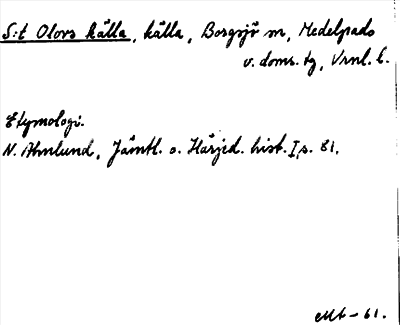 S:t Olovs källa, källa, Borgsjö sn, Medelpads
v. doms. tg, Vrnl. l.
Etymologi.
N. Ahnlund, Jämtl. o. Härjed. hist. I, s. 81.
-61.